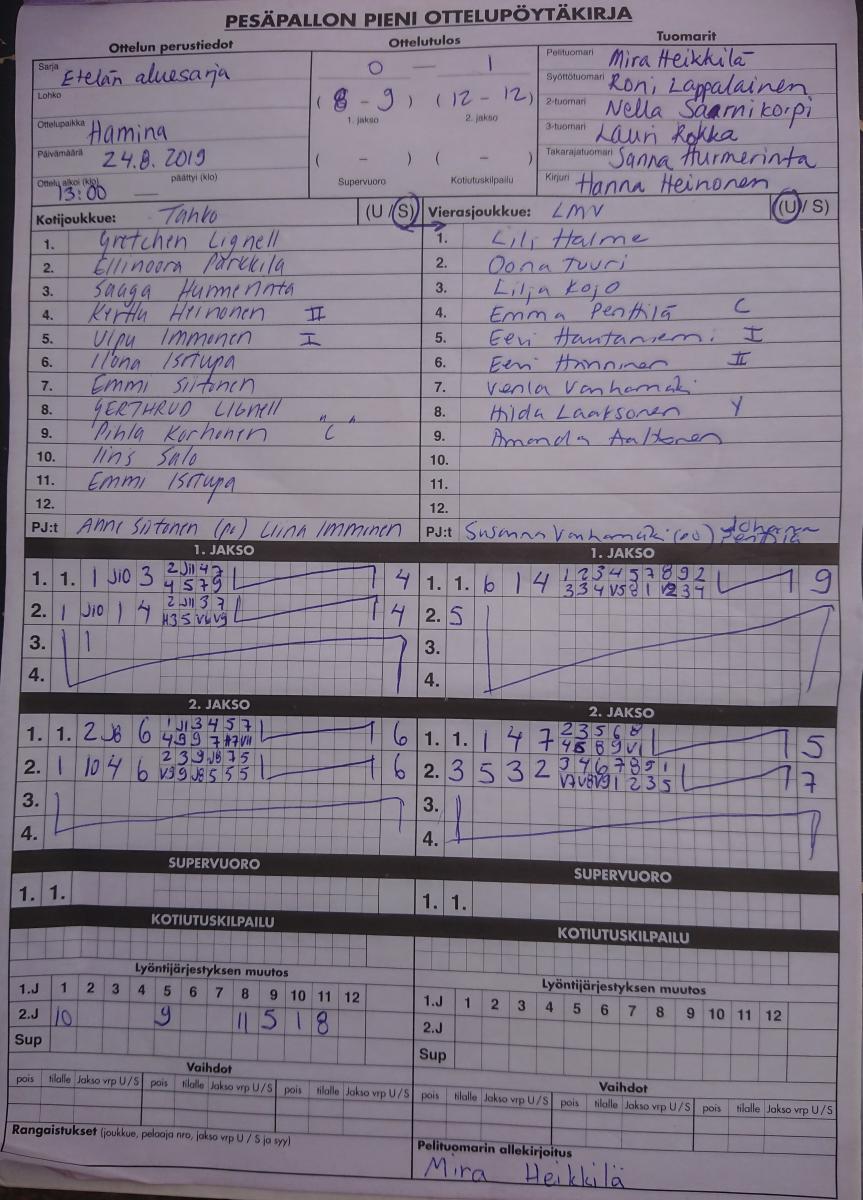 PESÄPALLON PIENI OTTELUPÖYTÄKIRJA
Ottelun perustiedot
Sarja Etelän aluesarja
Lohko
Ottelupaikka Hamina
Päivämäärä 24.8. 2019
Ottelu alkoi (klo) 13:00 — päättyi (klo)
Ottelutulos
0 — 1
(8 - 9) (12 - 12)
1. jakso 2. jakso
( - ) ( - )
Supervuoro Kotiutuskilpailu
Tuomarit
Pelituomari Mira Heikkilä
Syöttötuomari Roni Lappalainen
2-tuomari Nella Saarnikorpi
3-tuomari Lauri Rokka
Takarajatuomari Sanna Hurmerinta
Kirjuri Hanna Heinonen
Kotijoukkue: Tahko (U / S)
1. Gretchen Lignell
2. Ellinoora Parkkila
3. Saaga Hurmerinta
4. Kerttu Heinonen II
5. Ulpu Immonen I
6. Ilona Isitupa
7. Emmi Siitonen
8. GERTHRUD LIGNELL
9. Pihla Korhonen "C"
10. Iins Salo
11. Emmi Isitupa
12.
PJ:t Anne Siitonen (pv) Liina Imminen
Vierasjoukkue: LMV (U / S)
1. Lili Halme
2. Oona Tuuri
3. Lilja Kojo
4. Emma Penttilä C
5. Eevi Hautaniemi I
6. Eevi Hänninen II
7. Venla Vanhamäki
8. Hilda Laaksonen Y
9. Amanda Aaltonen
10.
11.
12.
PJ:t Susanna Vanhamäki Johanna Penttilä
1. JAKSO
1. 1. 1 J10 3 2 J11 4 7 4
4 5 7 9
2. 1 J10 1 4 2 J11 3 7 4
3. 1
4.
1. JAKSO
1. 1. 6 1 4 1 2 3 4 5 7 8 9 2 9
3 3 4 V5 8 1 V2 3 4
2. 5
3.
4.
2. JAKSO
1. 1. 2 J8 6 1 J1 3 4 5 7 6
4 9 9 7
2. 1 10 4 6 2 3 9 J8 7 5 6
V9 9 J8 5 5 5
3.
4.
2. JAKSO
1. 1. 1 4 7 2 3 5 6 8 5
4 5 8 9 V1
2. 3 5 3 2 3 4 6 7 8 5 1 7
V7 V8 V9 1 2 3 5
3.
4.
SUPERVUORO
1. 1.
SUPERVUORO
1. 1.
KOTIUTUSKILPAILU
KOTIUTUSKILPAILU
Lyöntijärjestyksen muutos
1.J 1 2 3 4 5 6 7 8 9 10 11 12
2.J 10 9 11 5 1 8
Sup
Lyöntijärjestyksen muutos
1.J 1 2 3 4 5 6 7 8 9 10 11 12
2.J
Sup
Vaihdot
pois tilalle Jakso vrp U / S pois tilalle Jakso vrp U / S pois tilalle Jakso vrp U / S
Vaihdot
pois tilalle Jakso vrp U / S pois tilalle Jakso vrp U / S pois tilalle Jakso vrp U / S
Rangaistukset (joukkue, pelaaja nro, jakso vrp U / S ja syy)
Pelituomarin allekirjoitus
Mira Heikkilä